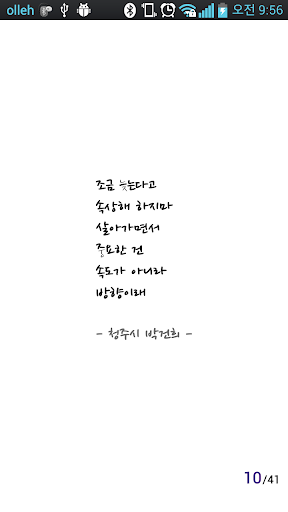 olleh 오전 9:56
조금 늦는다고
속상해 하지마
살아가면서
중요한 건
속도가 아니라
방향이래
- 청주시 박건희 -
10/41